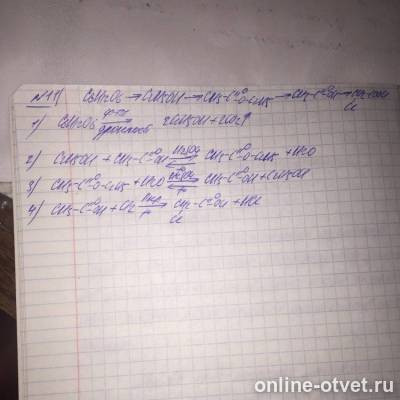 №11) C6H12O6 → C2H5OH → CH3-C=O-O-C2H5 → CH3-C=O-OH → CH2-COOH
Cl
1) C6H12O6 → 2C2H5OH + 2CO2↑
2) C2H5OH + CH3-C=O-OH ⇄ CH3-C=O-O-C2H5 + H2O
3) CH3-C=O-O-C2H5 + H2O ⇄ CH3-C=O-OH + C2H5OH
4) CH3-C=O-OH + Cl2 → CH2-C=O-OH + HCl
Cl
online-otvet.ru